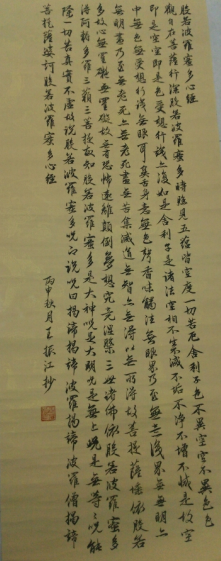 般若波羅蜜多心經
觀自在菩薩行深般若波羅蜜多時照見五蘊皆空度一切苦厄舍利子色不異空空不異色色
即是空空即是色受想行識亦復如是舍利子是諸法空相不生不滅不垢不淨不增不減是故空
中無色無受想行識無眼耳鼻舌身意無色聲香味觸法無眼界乃至無意識界無無明亦
無無明盡乃至無老死亦無老死盡無苦集滅道無智亦無得以無所得故菩提薩埵依般若
多故心無罣礙無罣礙故無有恐怖遠離顛倒夢想究竟涅槃三世諸佛依般若波羅蜜多
得阿耨多羅三藐三菩提故知般若波羅蜜多是大神咒是大明咒是無上咒是無等等咒能
除一切苦真實不虛故說般若波羅蜜多咒即說咒曰揭諦揭諦波羅揭諦波羅僧揭諦
菩提薩婆訶般若波羅蜜多心經
丙申秋月王振江抄